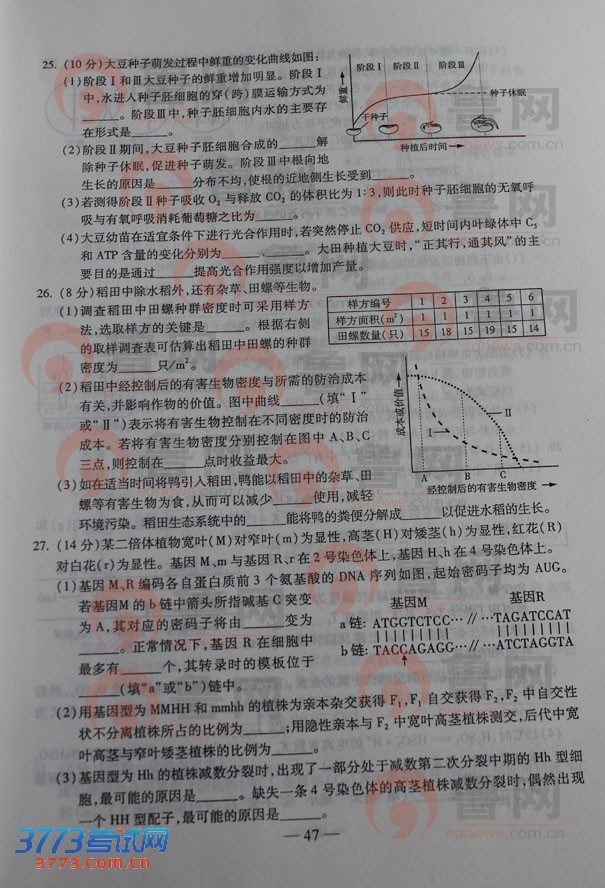 25. (10分)大豆种子萌发过程中鲜重的变化曲线如图:
(1)阶段Ⅰ和Ⅲ大豆种子的鲜重增加明显。阶段Ⅰ
中,水进入种子胚细胞的穿(跨)膜运输方式为
______。阶段Ⅲ中,种子胚细胞内水的主要存
在形式是______。
阶段Ⅰ 阶段Ⅱ 阶段Ⅲ
鲜重
种子休眠
干种子
种植后时间
(2)阶段Ⅱ期间,大豆种子胚细胞合成的______解
除种子休眠,促进种子萌发。阶段Ⅲ中根向地
生长的原因是______分布不均,使根的近地侧生长受到______。
(3)若测得阶段Ⅱ种子吸收O2与释放CO2的体积比为1:3,则此时种子胚细胞的无氧呼
吸与有氧呼吸消耗葡萄糖之比为______。
(4)大豆幼苗在适宜条件下进行光合作用时,若突然停止CO2供应,短时间内叶绿体中C5
和ATP含量的变化分别为______、______。大田种植大豆时,“正其行,通其风”的主
要目的是通过______提高光合作用强度以增加产量。
26. (8分)稻田中除水稻外,还有杂草、田螺等生物。
(1)调查稻田中田螺种群密度时可采用样方
法,选取样方的关键是______。根据右侧
的取样调查表可估算出稻田中田螺的种群
密度为______只/m²。
样方编号 1 2 3 4 5 6
样方面积(m²) 1 1 1 1 1 1
田螺数量(只) 15 18 15 19 15 14
(2)稻田中经控制后的有害生物密度与所需的防治成本
有关,并影响作物的价值。图中曲线______(填“Ⅰ”
或“Ⅱ”)表示将有害生物控制在不同密度时的防治
成本。若将有害生物密度分别控制在图中A、B、C
三点,则控制在______点时收益最大。
成本或价值
Ⅰ
Ⅱ
A B C
经控制后的有害生物密度
(3)如在适当时间将鸭引入稻田,鸭能以稻田中的杂草、田
螺等有害生物为食,从而可以减少______使用,减轻
环境污染。稻田生态系统中的______能将鸭的粪便分解成______以促进水稻的生长。
27. (14分)某二倍体植物宽叶(M)对窄叶(m)为显性,高茎(H)对矮茎(h)为显性,红花(R)
对白花(r)为显性。基因M、m与基因R、r在2号染色体上,基因H、h在4号染色体上。
(1)基因M、R编码各自蛋白质前3个氨基酸的DNA序列如图,起始密码子均为AUG。
若基因M的b链中箭头所指碱基C突变
为A,其对应的密码子将由______变为
______。正常情况下,基因R在细胞中
最多有______个,其转录时的模板位于
______(填“a”或“b”)链中。
基因M 基因R
a链: ATGGTCTCC…//…TAGATCCAT
b链: TACCAGAGG…//…ATCTAGGTA
(2)用基因型为MMHH和mmhh的植株为亲本杂交获得F1,F1自交获得F2,F2中自交性
状不分离植株所占的比例为______;用隐性亲本与F2中宽叶高茎植株测交,后代中宽
叶高茎与窄叶矮茎植株的比例为______。
(3)基因型为Hh的植株减数分裂时,出现了一部分处于减数第二次分裂中期的Hh型细
胞,最可能的原因是______。缺失一条4号染色体的高茎植株减数分裂时,偶然出现
一个HH型配子,最可能的原因是______。
— 47 —
3773考试网
3773.com.cn
鲁网
sdnews.com.cn